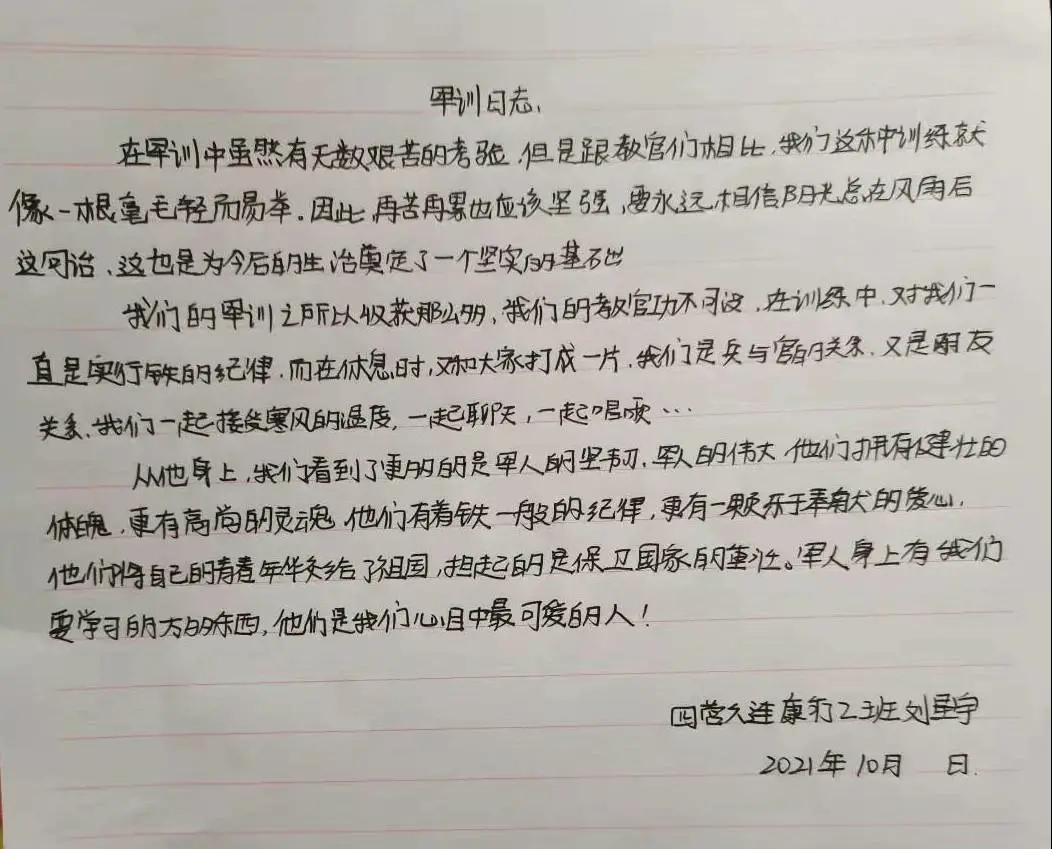 军训日志、
在军训中虽然有无数艰苦的考验.但是跟教官们相比,我们这种训练就
像一根毫毛轻而易举.因此,再苦再累也应该坚强,要永远相信阳光总在风雨后
这句话、这也是为今后的生活奠定了一个坚实的基础
我们的军训之所以收获那么多,我们的教官功不可没.在训练中,对我们一
直是实行铁的纪律.而在休息时,又和大家打成一片.我们是兵与官的关系.又是朋友
关系、我们一起接受寒风的温度,一起聊天,一起唱歌…
从他身上,我们看到了更多的是军人的坚韧.军人的伟大 他们拥有健壮的
体魄.更有高尚的灵魂 他们有着铁一般的纪律,更有一颗乐于奉献的爱心.
他们将自己的青春年华交给了祖国,担起的是保卫国家的重任。军人身上有我们
要学习的太多东西,他们是我们心目中最可爱的人!
四营久连康行2班刘星宇
2021年10月 日.